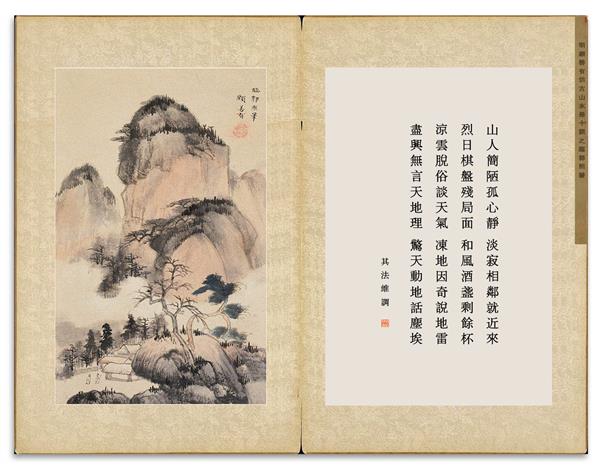 明顧善有仿古山水冊十之臨郭熙筆
山人簡陋孤心靜 淡寂相鄰就近來
烈日棋盤殘局面 和風酒盞剩餘杯
涼雲脫俗談天氣 凍地因奇說地雷
盡興無言天地理 驚天動地話塵埃
其法維調
臨郭熙筆
顧善有